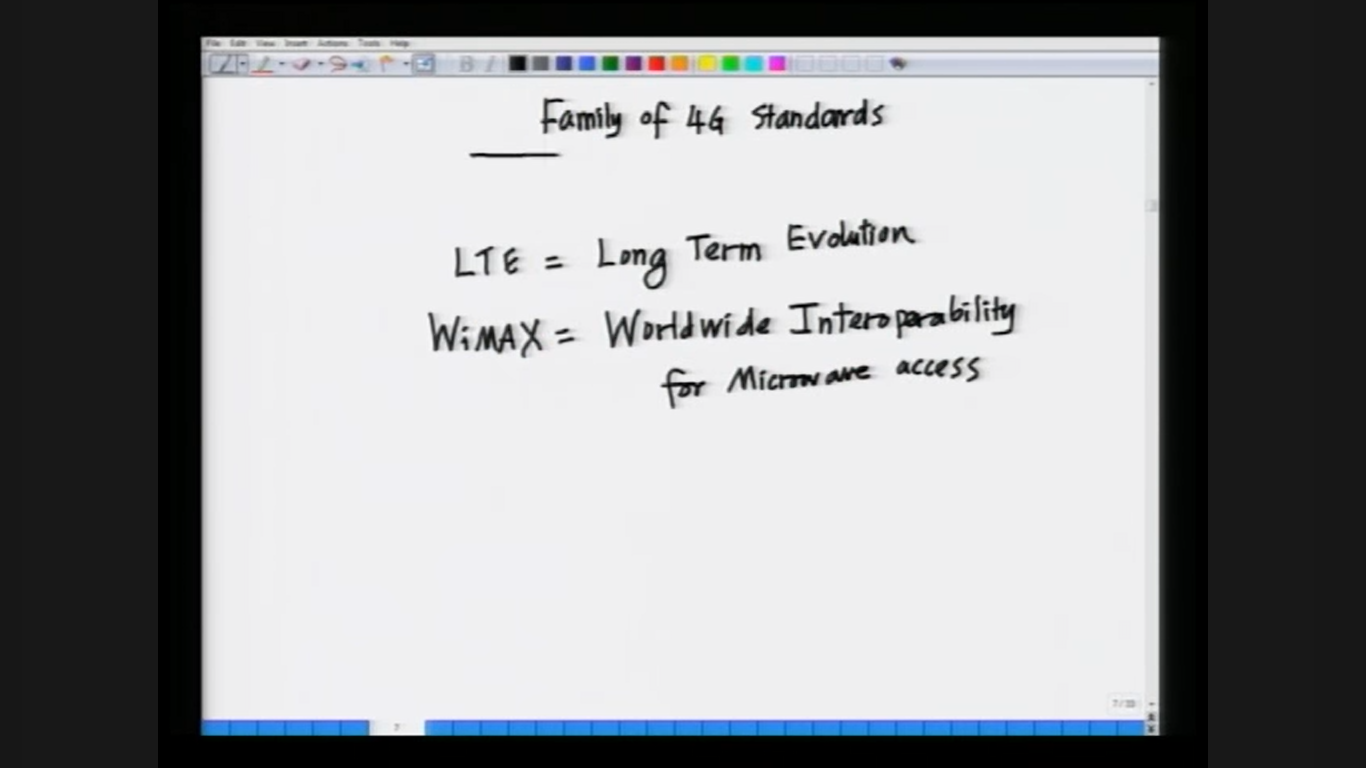 File Edit View Insert Actions Tools Help
B I
Family of 4G Standards
LTE = Long Term Evolution
WiMAX = Worldwide Interoperability
for Microwave access
7/33
7